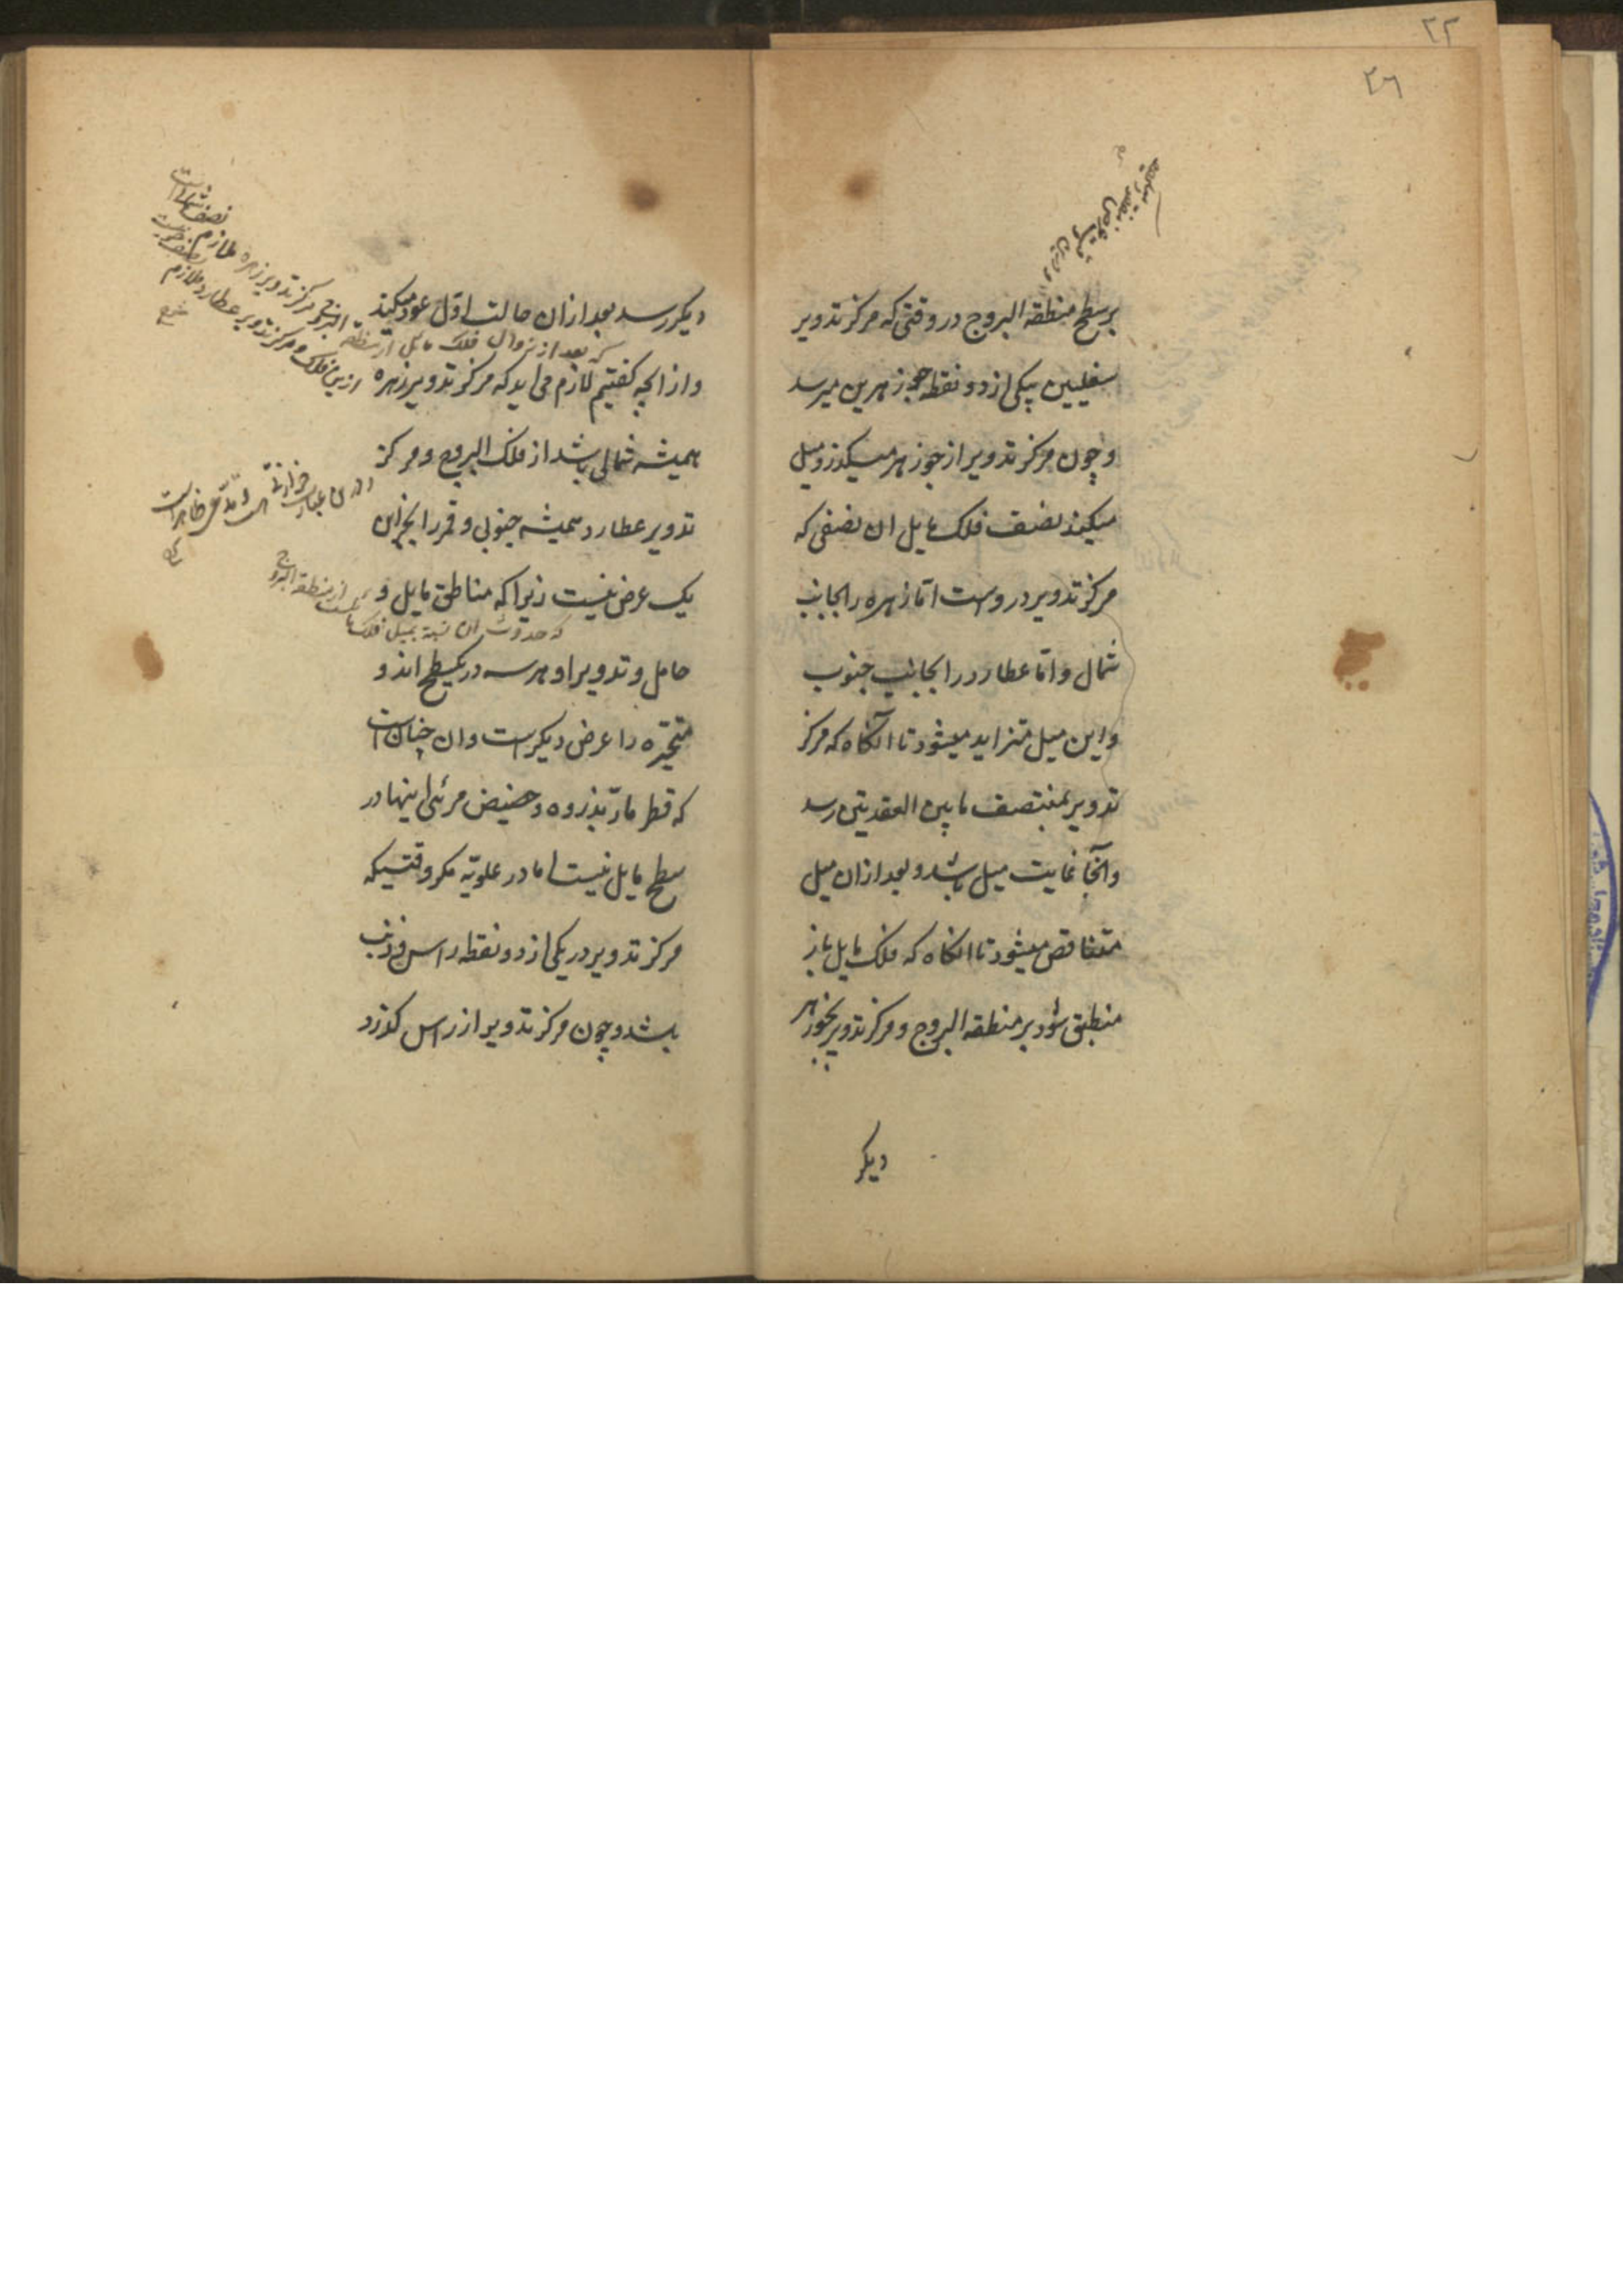 ۲۲
۲۶
بر سطح منطقه البروج در وقتی که مرکز تدویر
سفلیین بیکی از دو نقطه جوزهرین میرسد
و چون مرکز تدویر از جوزهر میگذرد میل
میکند نصف فلک مایل ان نصفی که
مرکز تدویر در وست اما زهره را بجانب
شمال و اما عطارد را بجانب جنوب
و این میل متزاید میشود تا آنکاه که مرکز
تدویر بمنتصف ما بین العقدیتن رسد
و آنجا غایت میل باشد و بعد ازان میل
متناقص میشود تا انکاه که فلک مایل باز
منطبق شود بر منطقه البروج و مرکز تدویر بجوزهر
دیکر
دیکر رسد بعد ازان حالت اوّل عود میکند
که بعد از زوال فلک مایل از منطقه البروج مرکز تدویر زهره ملازم نصف شمالیست
ازین فلک و مرکز تدویر عطارد ملازم نصف جنوبیست
و از انچه کفتیم لازم می اید که مرکز تدویر زهره
همیشه شمالی باشد از فلک البروج و مرکز
تدویر عطارد همیشه جنوبی و قمر را بجز ان
یک عرض نیست زیرا که مناطق مایل و
که حدوث ان نسبة بمیل فلک مایلست از منطقه البروج
حامل و تدویر او هر سه در یکسطح اند و
متحیّره را عرض دیکرست و ان چنانست
که قطر مارّ بذروه و حضیض مرئی اینها در
سطح مایل نیست اما در علویّه مکر وقتیکه
مرکز تدویر در یکی از دو نقطه راس و ذنب
باشد و چون مرکز تدویر از راس کذرد